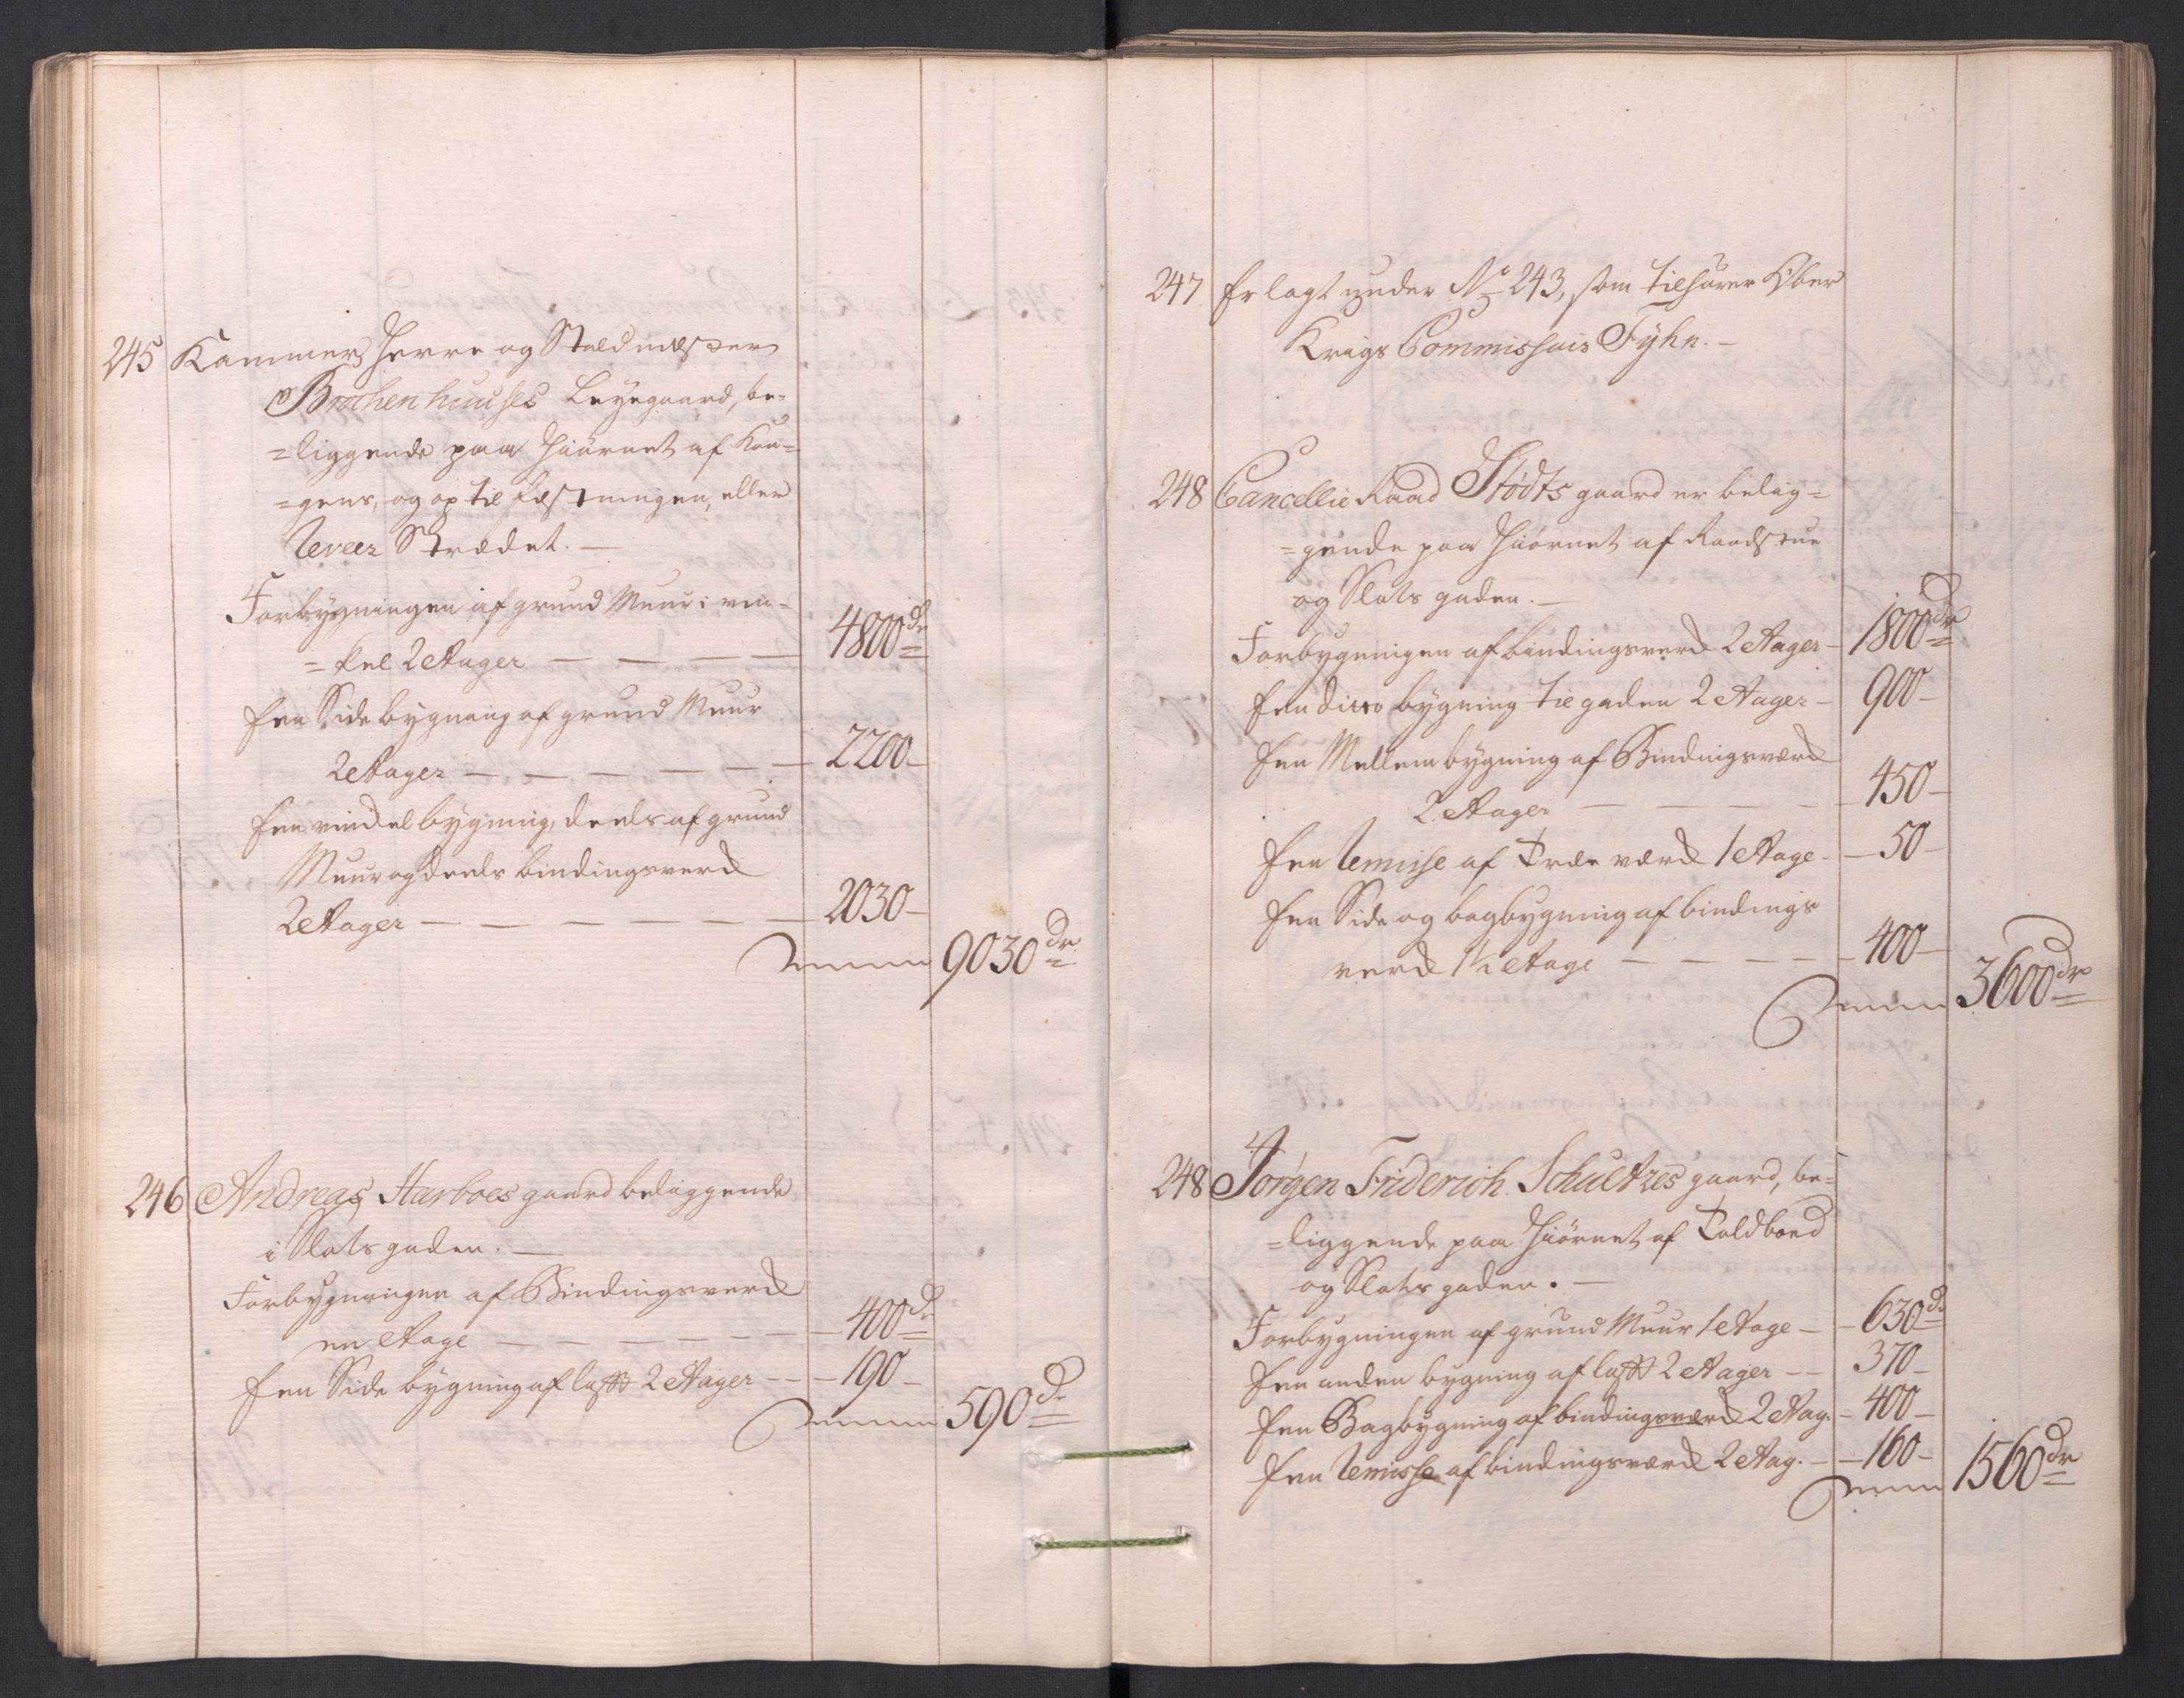 245 Kammer Herre og Staldmester
Brochenhuuses Leyegaard, be-
=liggende paa Hiörnet af Kon=
=gens, og op til Fæstningen, eller
Tveer Strædet. —
Forbygningen af grund Muur i vin=
=kel 2 Etager — — — — 4800 dr
Een Side bygning af grund Muur
2 Etager — — — — — 2200 —
Een vinckel bygning, deels af grund
Muur og deels bindingsverck
2 Etager — — — — — 2030 —
Summa 9030 dr
246 Andreas Harboes gaard beliggende
i Slots gaden. —
Forbygningen af Bindingsverck
en Etage — — — — — 400 dr
Een Side bygning af laft 2 Etager — — 190 —
Summa 590 dr
247 Er lagt under No 243, som tilhörer Ober
Krigs Commissair Fyhn. —
248 Cancellie Raad Stödts gaard er belig=
=gende paa Hiörnet af Raadstue
og Slots gaden. —
Forbygningen af bindingsverck 2 Etager — 1800 dr
Een ditto bygning til gaden 2 Etager — 900 —
Een Mellembygning af Bindingsværck
2 Etager — — — — 450 —
Een Remise af Træe værck 1 Etage — 50 —
Een Side og bagbygning af bindings
verck 1½ Etage — — — — 400 —
Summa 3600 dr
248 Jörgen Friderich Schultzes gaard, be=
=liggende paa Hiörnet af Toldboed
og Slots gaden. —
Forbygningen af grund Muur 1 Etage — 630 dr
Een anden bygning af laft 2 Etager — — 370 —
Een Bagbygning af bindingsværck 2 Etag. — 400 —
Een Remisse af bindingsværck 2 Etag. — 160 —
Summa 1560 dr